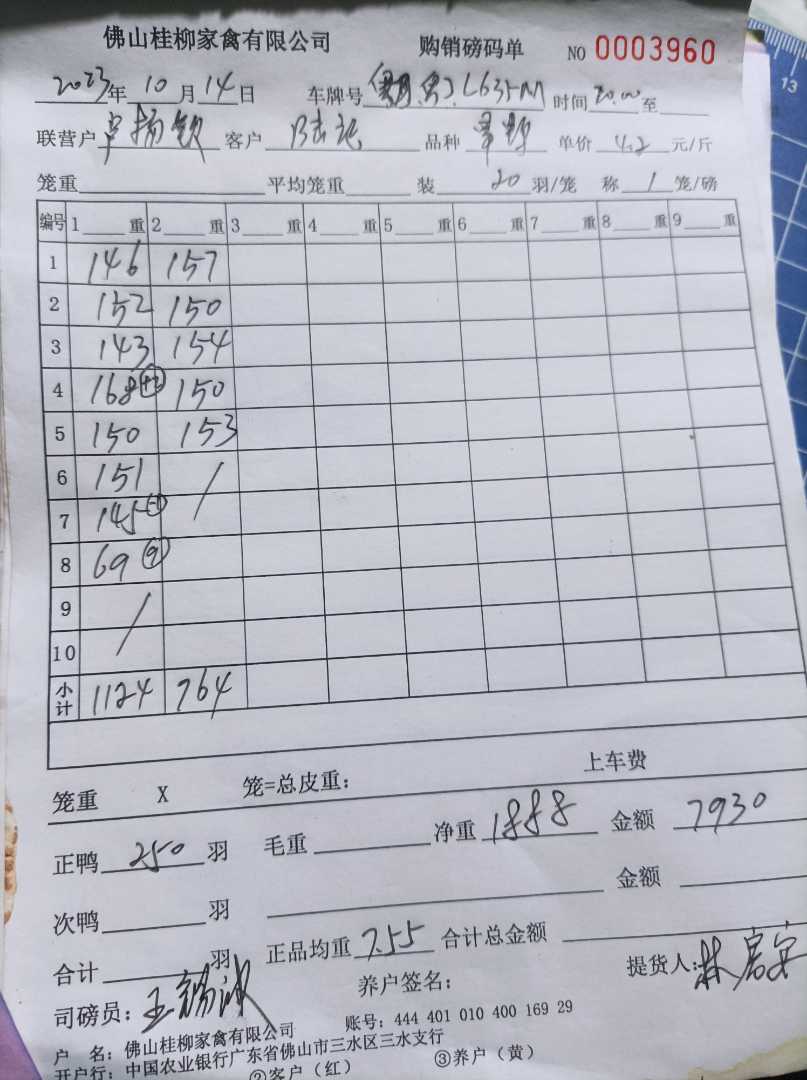 佛山桂柳家禽有限公司 购销磅码单 NO 0003960
2023年 10 月 14 日 车牌号 L635M 时间 20.00 至
联营户 卢扬钦 客户 品种 单价 4.2 元/斤
笼重 平均笼重 装 20 羽/笼 称 1 笼/磅
编号 1 重 2 重 3 重 4 重 5 重 6 重 7 重 8 重 9 重
1 146 157
2 152 150
3 143 154
4 168 150
5 150 153
6 151 /
7 145 (-1)
8 69 (9)
9 /
10
小计 1124 764
笼重 X 笼=总皮重: 上车费
正鸭 250 羽 毛重 净重 1888 金额 7930
次鸭 羽 金额
合计 羽 正品均重 7.55 合计总金额
司磅员: 王锡波 养户签名: 提货人: 林
户 名: 佛山桂柳家禽有限公司 账号: 444 401 010 400 169 29
开户行: 中国农业银行广东省佛山市三水区三水支行
②客户（红） ③养户（黄）
13